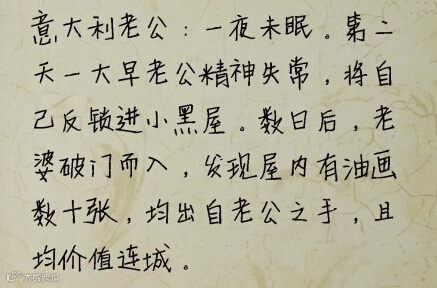 意大利老公：一夜未眠。第二
天一大早老公精神失常，将自
己反锁进小黑屋。数日后，老
婆破门而入，发现屋内有油画
数十张，均出自老公之手，且
均价值连城。